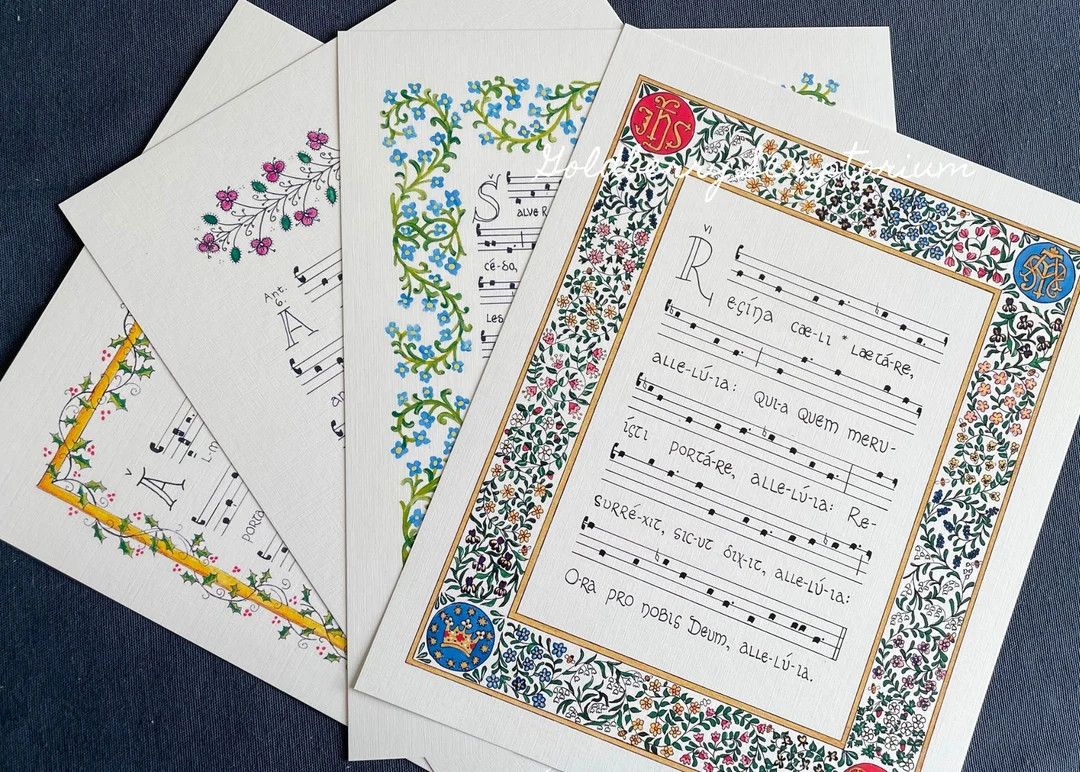 Goldberry Scriptorium
IHS
VI
Regína cæ-li * lætá-re,
alle-lú-ia: Qui-a quem meru-
ísti portá-re, alle-lú-ia: Re-
surré-xit, sic-ut dix-it, alle-lú-ia:
O-ra pro nobis Deum, alle-lú-ia.
SALVE R
cé-do,
les
Ant.
6.
A
an
V
A
L-m
porta